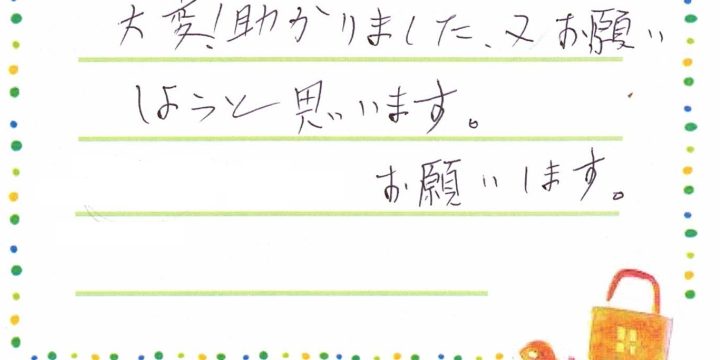 大変!助かりました、又お願い
しようと思います。
お願いします。